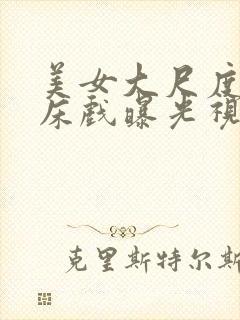 美女大尺度
床戲曝光視
克里斯特尔斯